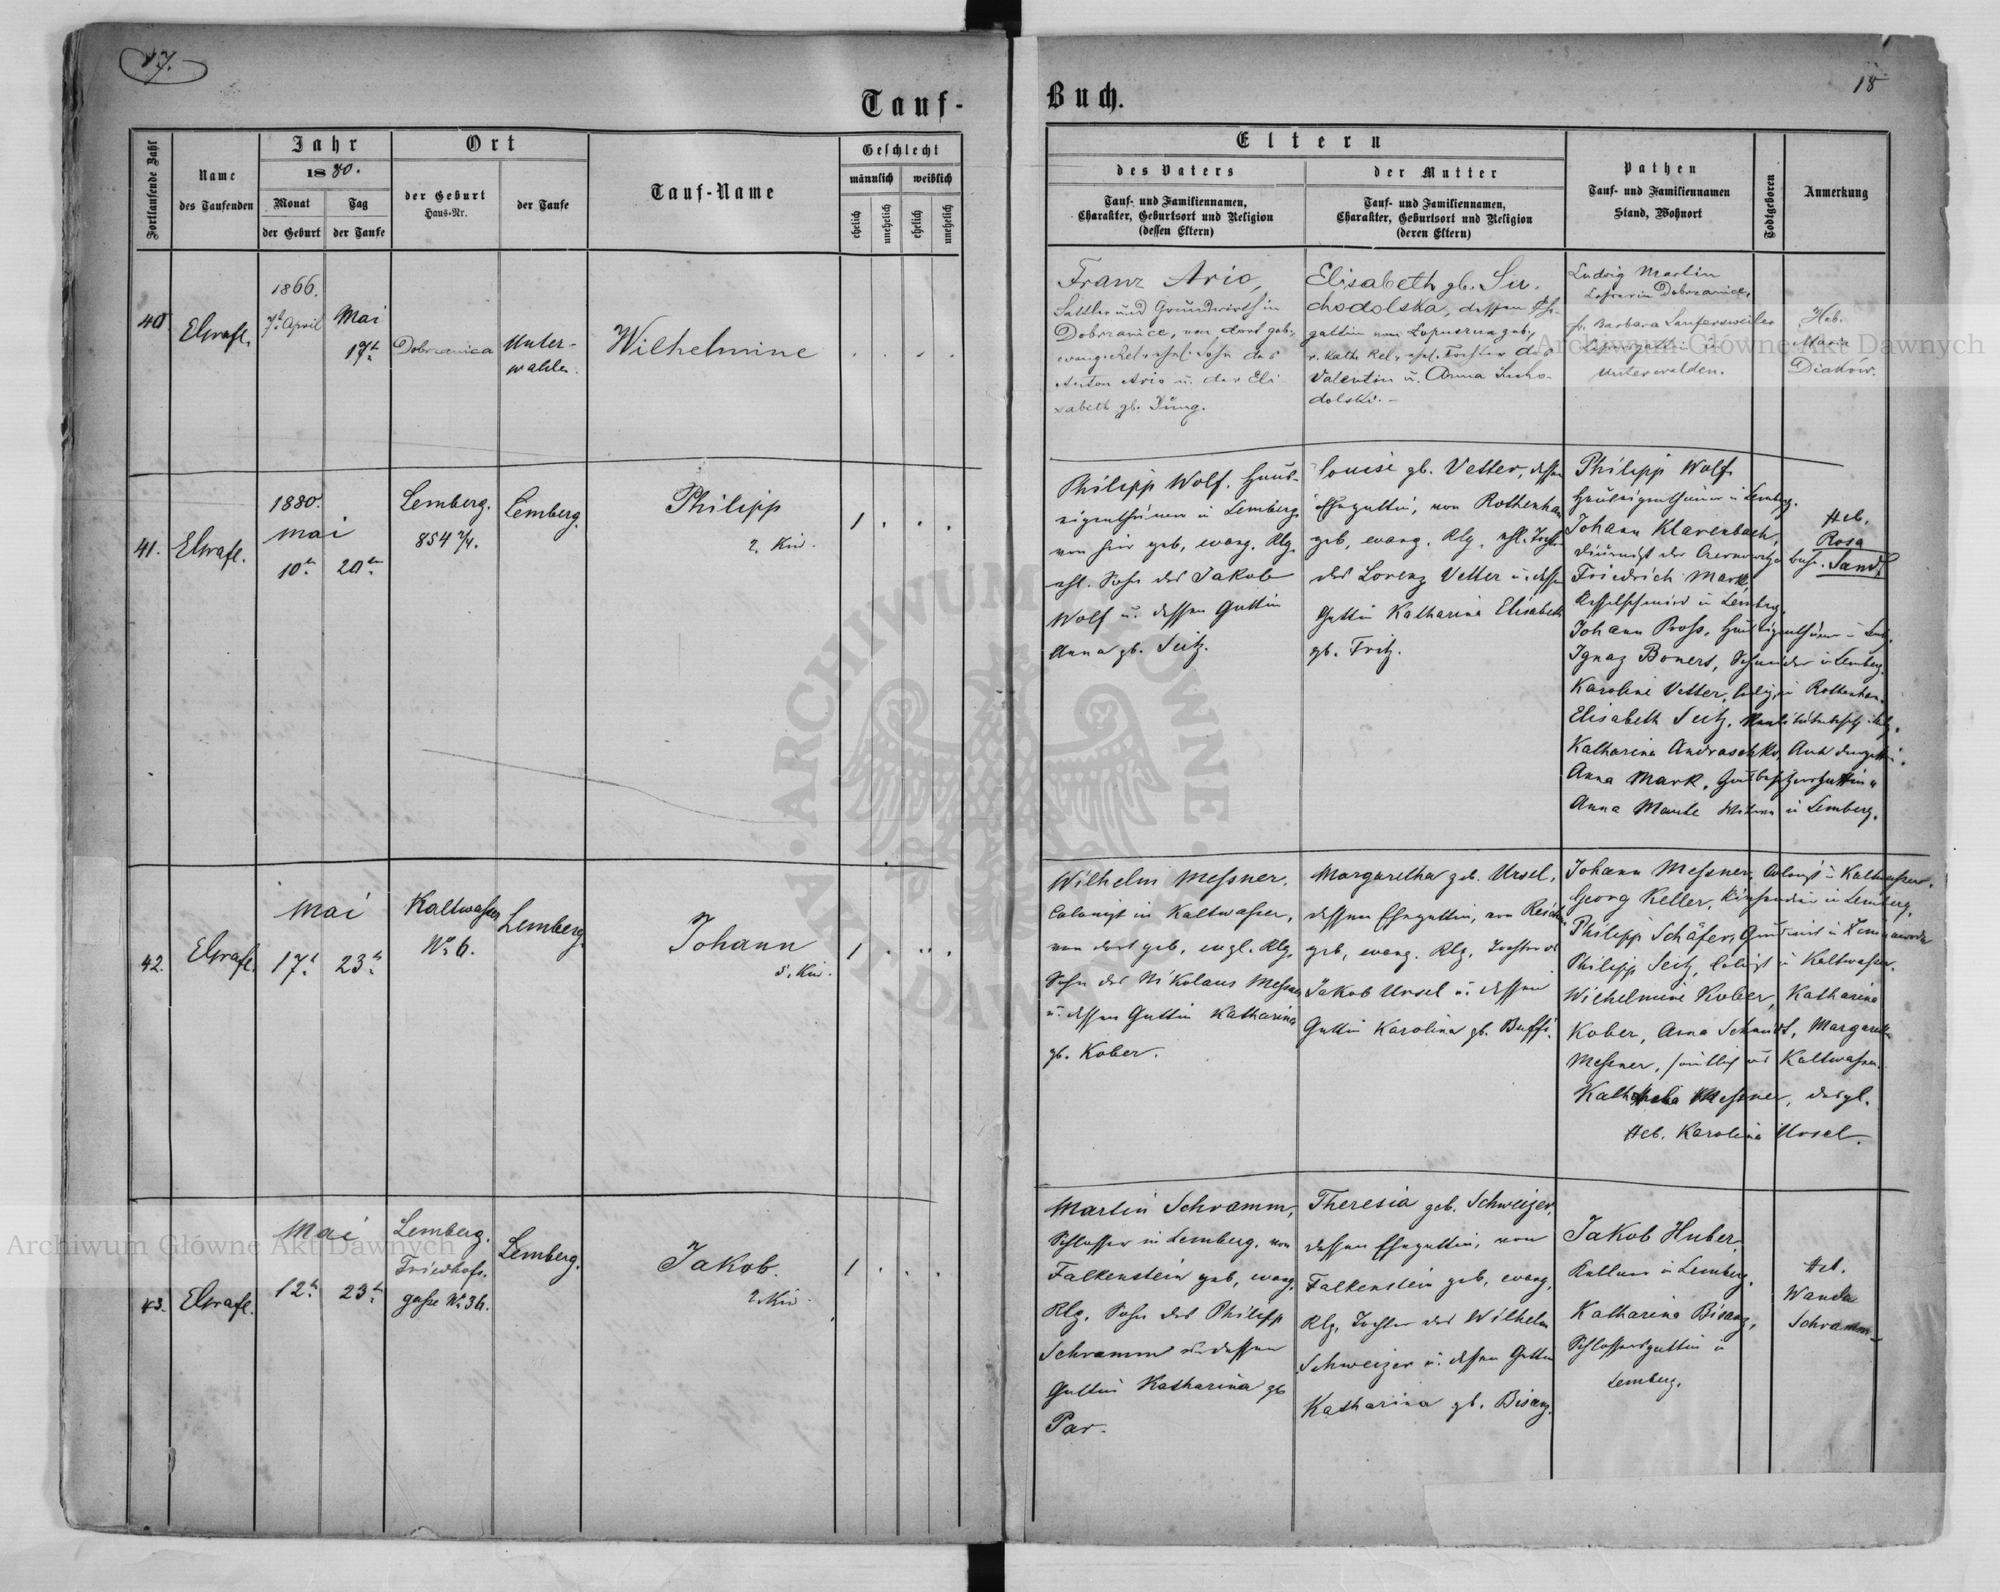 17.
18
Tauf-
Buch.
Fortlaufende Zahl
Name
des Taufenden
Jahr
1880.
Monat
der Geburt
Tag
der Taufe
Ort
der Geburt
Haus-Nr.
der Taufe
Tauf-Name
Geschlecht
männlich
weiblich
ehelich
unehelich
ehelich
unehelich
Eltern
des Vaters
Tauf- und Familiennamen,
Charakter, Geburtsort und Religion
(dessen Eltern)
der Mutter
Tauf- und Familiennamen,
Charakter, Geburtsort und Religion
(deren Eltern)
Pathen
Tauf- und Familiennamen
Stand, Wohnort
Todtgeboren
Anmerkung
40
1866.
7t April
Mai
17t
Dobrzanica
Unter-
walden.
Wilhelmine
Franz Ario,
Sattler und Grundwirth in
Dobrzanice, von dort geb.,
evang. Rel., ehel. Sohn des
Anton Ario u. der Eli-
sabeth gb. Jung.
Elisabeth gb. Su-
chodolska, dessen Ehe-
gattin von Lopuszna geb.,
r. kath. Rel., ehel. Tochter des
Valentin u. Anna Sucho-
dolski.-
Ludwig Martin
Lehrer in Dobrzanice,
fr. Barbara Laufersweiler
in
Unterwalden.
Heb.
Maria
Diaków.
41.
1880.
Mai
10t
20t
Lemberg.
854 2/4.
Lemberg.
Philipp
2. Kind.
1
Philipp Wolf. Haus-
eigenthümer in Lemberg
von hier geb, evang. Rlg.
ehl. Sohn des Jakob
Wolf u. dessen Gattin
Anna gb. Seitz.
Louise gb. Vetter, dessen
Ehegattin, von Rottenhan
geb, evang. Rlg, ehl. Tochter
des Lorenz Vetter u. dessen
Gattin Katharina Elisabeth
gb. Fritz.
Philipp Wolf.
Hauseigenthümer in Lemberg.
Johann Klarenbach,
Diurnist der Czernowitzer Bahn.
Friedrich Mark
Kesselschmied in Lemberg.
Johann Pross, Hauseigenthümer in Lembg.
Ignaz Boners, Schneider in Lemberg.
Karoline Vetter, ledig, in Rottenhan.
Elisabeth Seitz,
Katharina Andraschko,
Anna Mark, Gutsbesitzersgattin
Anna Manle Witwe in Lemberg.
Heb.
Rosa
Sand
42.
Mai
17t
23t
Kaltwasser
No 6.
Lemberg.
Johann
5. Kind.
1
Wilhelm Messner.
Colonist in Kaltwasser,
von dort geb, evgl. Rlg,
Sohn des Nikolaus Messner
u. dessen Gattin Katharina
gb. Kober.
Margaretha geb. Ursel,
dessen Ehegattin, von
geb, evang. Rlg, Tochter d.
Jakob Ursel u. dessen
Gattin Karolina gb. Buffi.
Johann Messner, Colonist in Kaltwasser.
Georg Keller, in Lemberg.
Philipp Schäfer, in
Philipp Seitz, Colonist in Kaltwasser.
Wilhelmine Kober, Katharina
Kober, Anna Schmidt, Margareth
Messner, sämtlich aus Kaltwasser.
Katharina Messner, desgl.
Heb. Karolina Ursel.
43.
Mai
12t
23t
Lemberg.
Friedhofs-
gasse No 36.
Lemberg.
Jakob.
2. Kind.
1
Martin Schramm,
Schlosser in Lemberg, von
Falkenstein geb, evang.
Rlg, Sohn des Philipp
Schramm u. dessen
Gattin Katharina gb
Par.
Theresia geb. Schweizer,
dessen Ehegattin, von
Falkenstein geb, evang,
Rlg, Tochter des Wilhelm
Schweizer u. dessen Gattin
Katharina gb. Bisanz.
Jakob Huber,
in Lemberg.
Katharina Bisanz,
Schlossersgattin in
Lemberg.
Heb.
Wanda
Schramm
Archiwum Główne Akt Dawnych
Archiwum Główne Akt Dawnych
ARCHIWUM GŁÓWNE AKT DAWNYCH